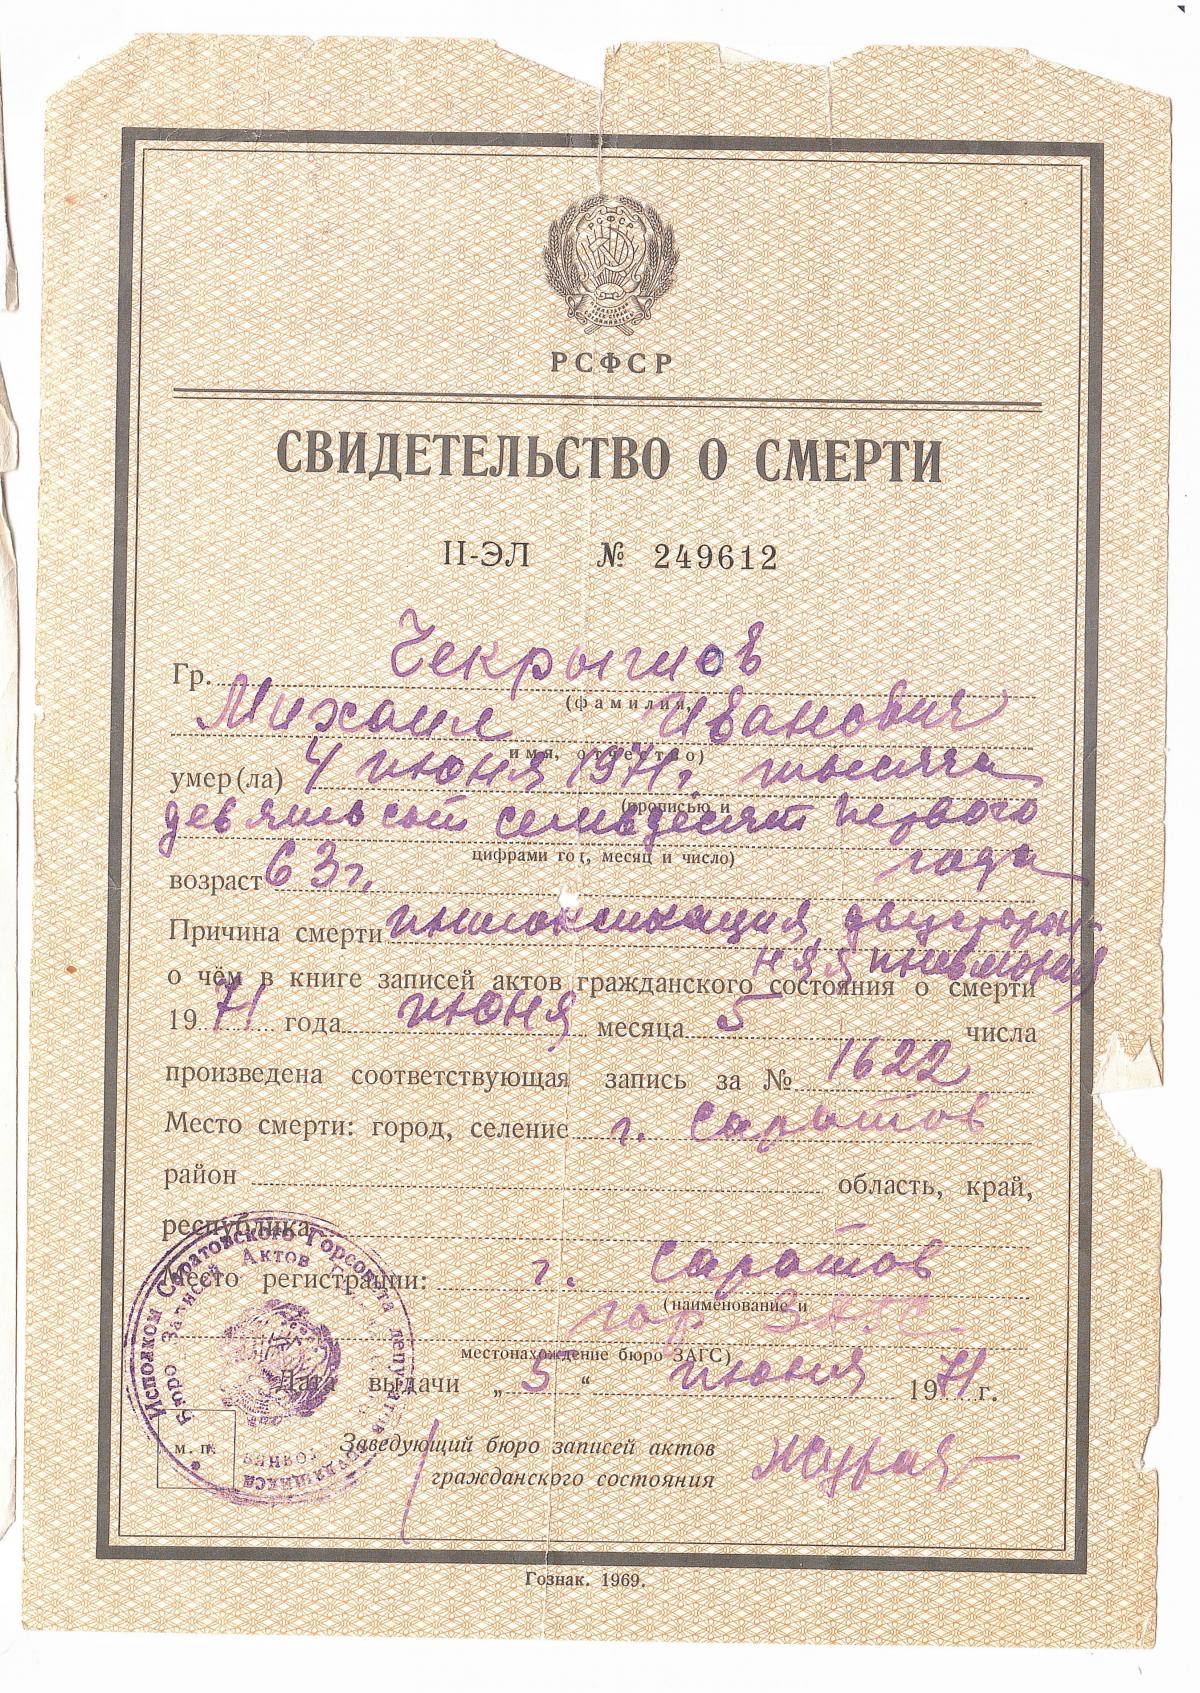 РСФСР
РСФСР
СВИДЕТЕЛЬСТВО О СМЕРТИ
II-ЭЛ № 249612
Гр. Чекрыжов
(фамилия,
Михаил Иванович
имя, отчество)
умер(ла) 4 июня 1971 г. тысяча
(прописью и
девятьсот семьдесят первого
цифрами год, месяц и число)
года
возраст 63 г.
Причина смерти интоксикация, двусторон-
няя пневмония
о чём в книге записей актов гражданского состояния о смерти
1971 года июня месяца 5 числа
произведена соответствующая запись за № 1622
Место смерти: город, селение г. Саратов
район область, край,
республика
Место регистрации: г. Саратов
(наименование и
гор ЗАГС
местонахождение бюро ЗАГС)
Дата выдачи „5“ июня 1971 г.
М. П.
Заведующий бюро записей актов
гражданского состояния
Исполком Саратовского Горсовета депутатов трудящихся
Бюро Записей Актов
Гознак. 1969.